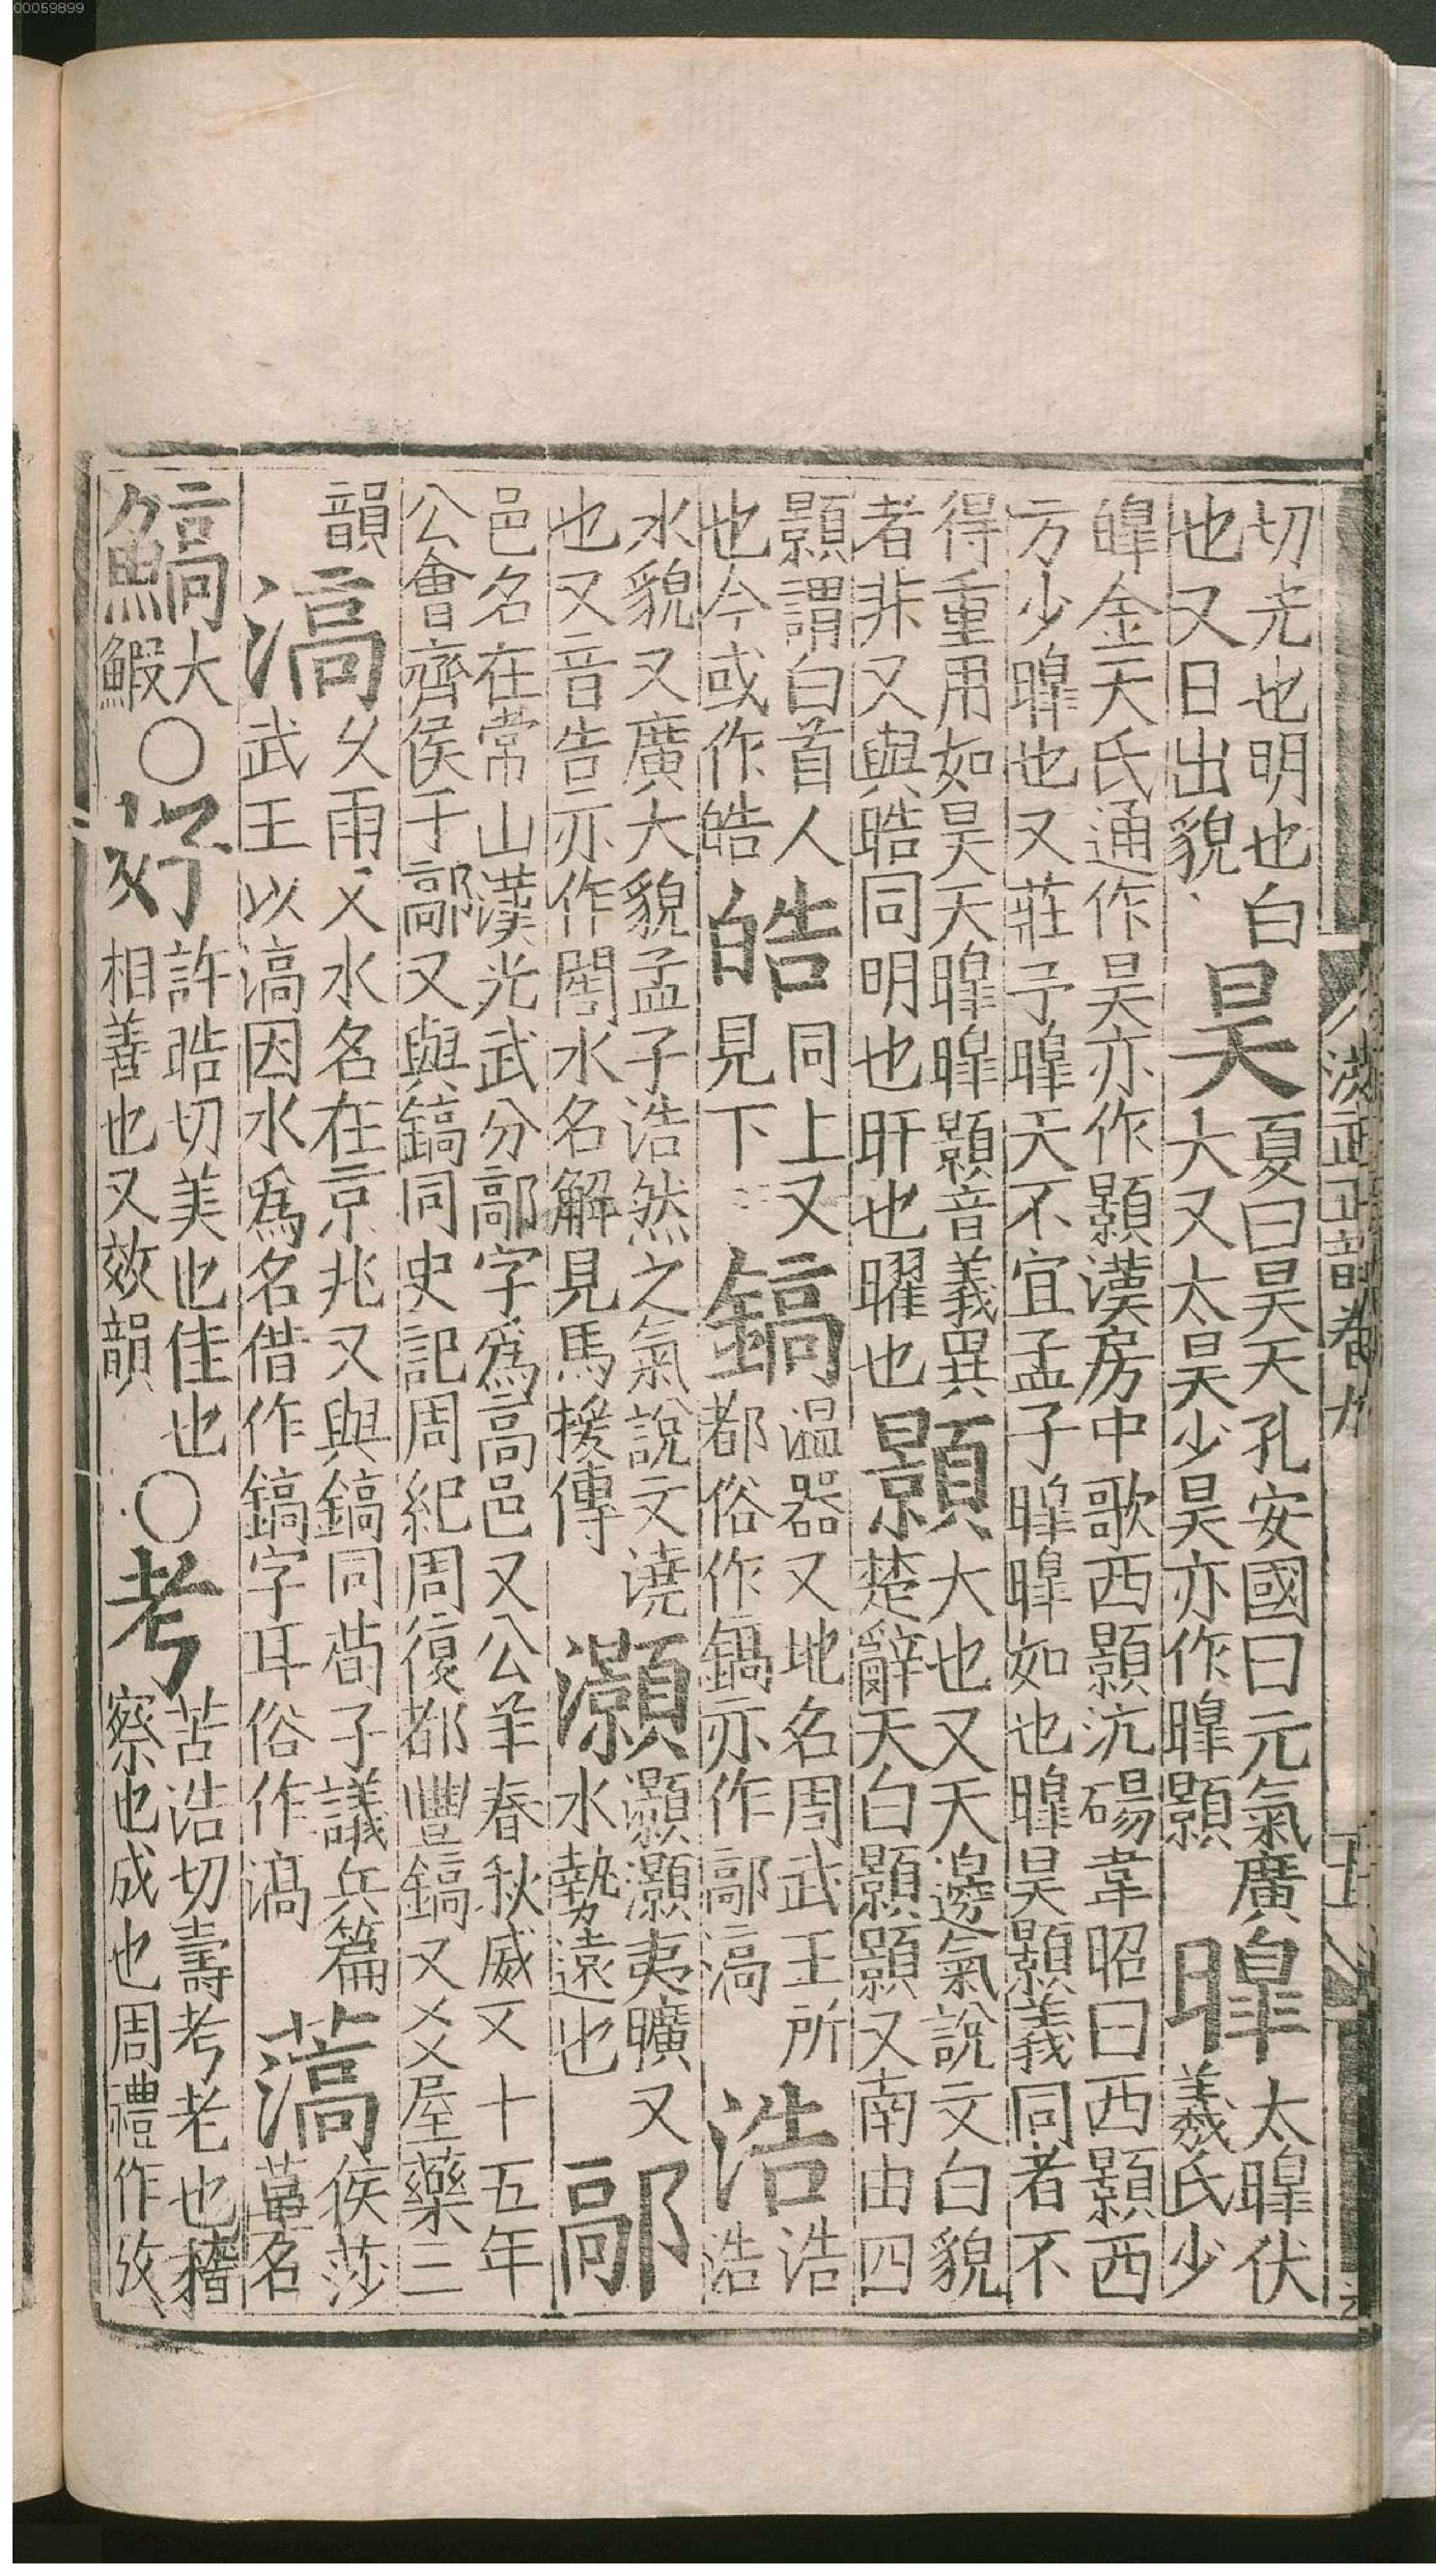 00059899
切光也明也白
也又日出貌
昊
夏曰昊天孔安國曰元氣廣
大又太昊少昊亦作暤顥
暤
太暤伏
羲氏少
皥金天氏通作昊亦作顥漢房中歌西顥沆碭韋昭曰西顥西
方少暤也又莊子暤天不宜孟子暤暤如也暤昊顥義同者不
得重用如昊天暤暤顥音義異
者非又與晧同明也旰也曜也
顥
大也又天邊氣說文白貌
楚辭天白顥顥又南山四
顥謂白首人
也今或作皓
皓
同上又
見下
鎬
溫器又地名周武王所
都俗作鎬亦作鄗滈
浩
浩浩
水貌又廣大貌孟子浩然之氣說文澆
也又音告亦作閣水名解見馬援傳
灝
灝灝夷曠又
水勢遠也
鄗
邑名在常山漢光武分鄗字爲高邑又公羊春秋威又十五年
公會齊侯于鄗又與鎬同史記周紀周復都豐鎬又爻屋藥三
韻
滈
久雨又水名在京兆又與鎬同荀子議兵篇
武王以滈因水爲名借作鎬字耳俗作滈
薃
侯莎
草名
鰝
大
鰕
○
好
許晧切美也佳也
相善也又效韻
○
考
苦浩切壽考老也稽
察也成也周禮作攷
洪武正韻卷九